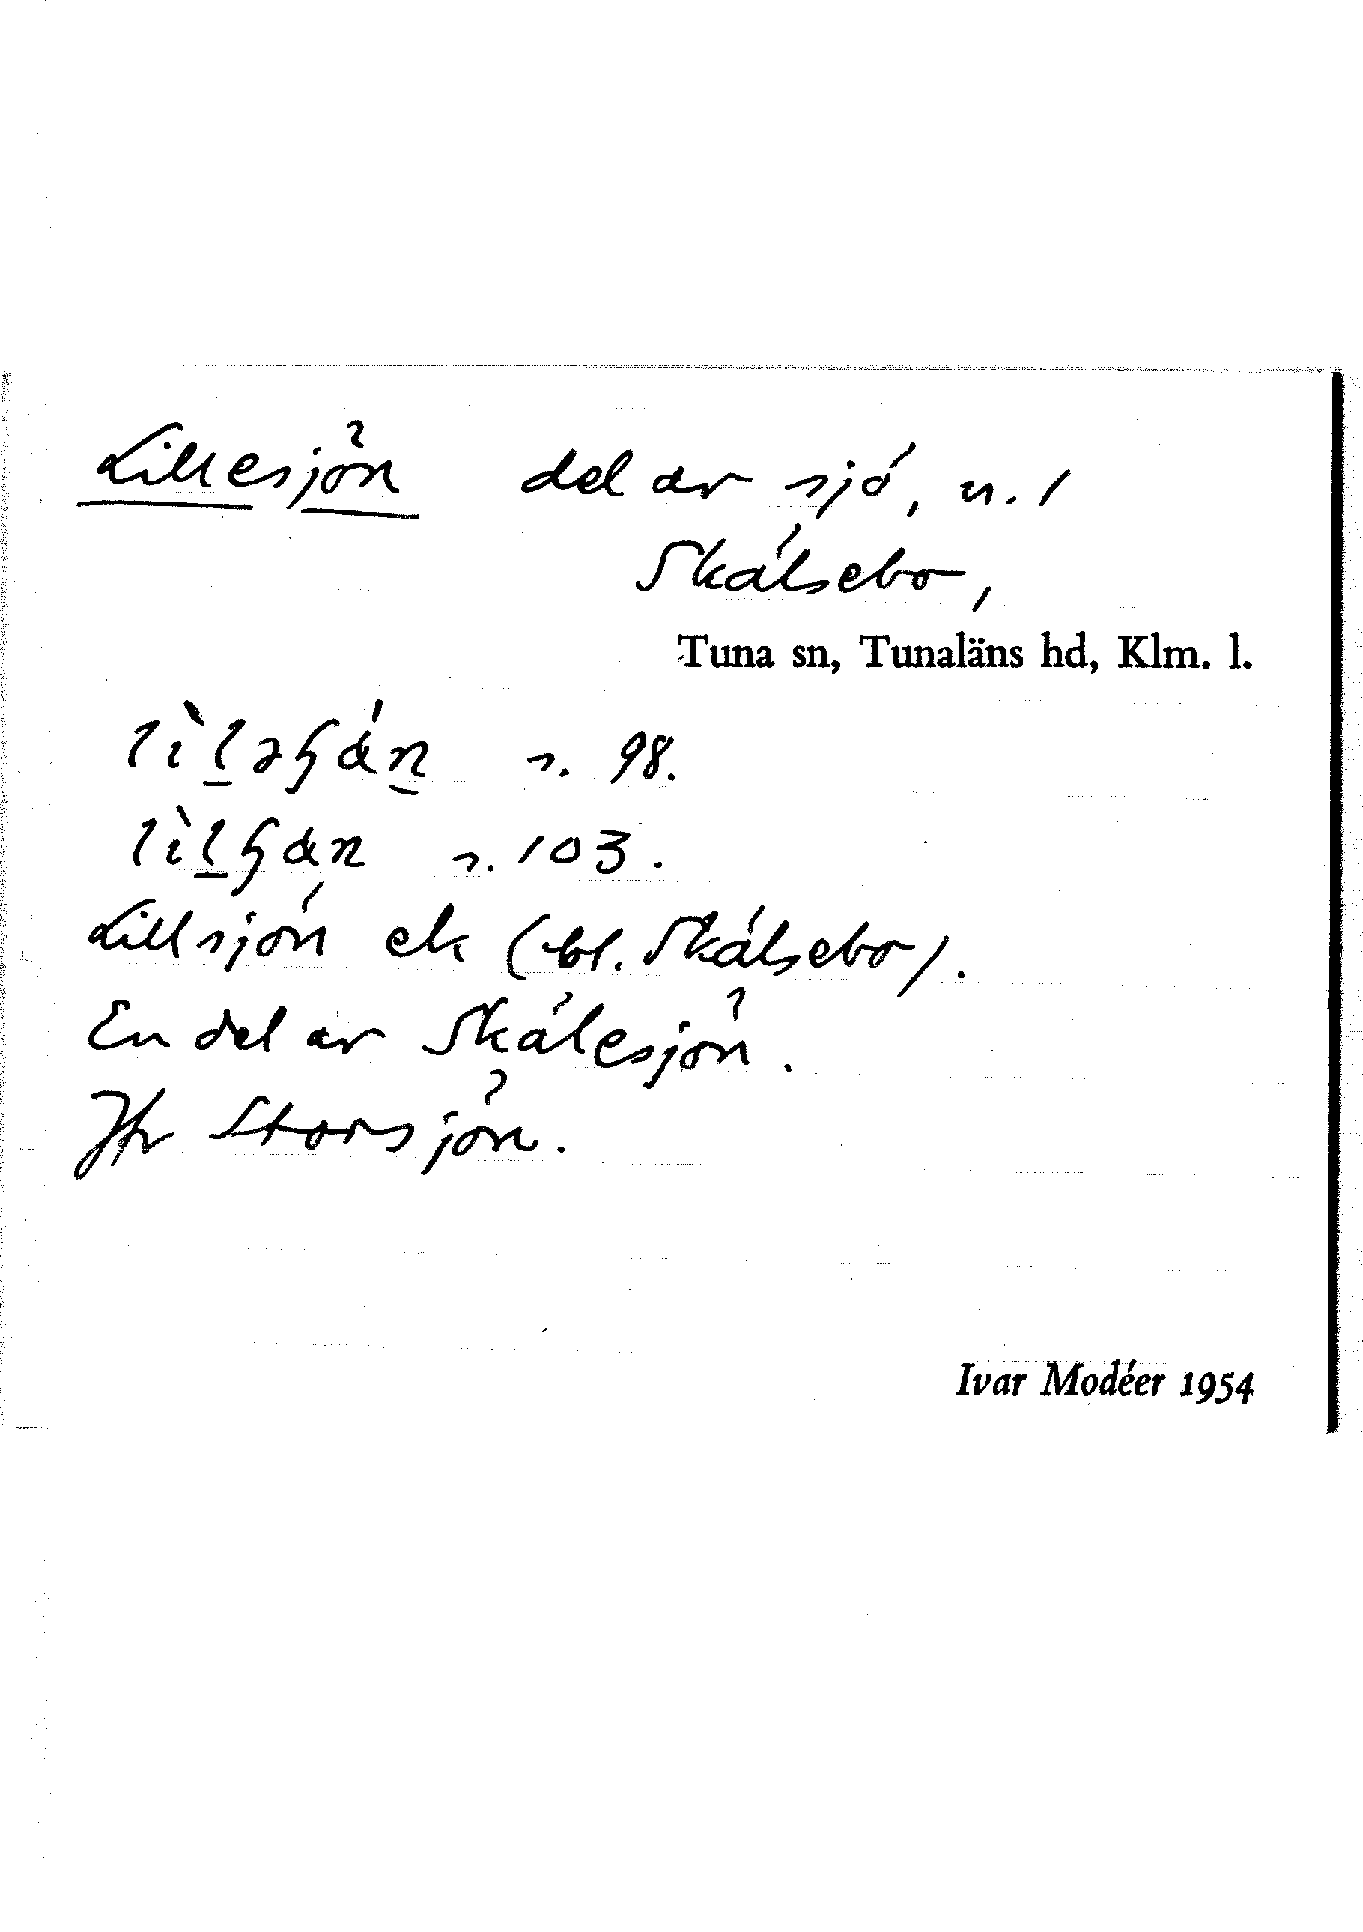 Lillesjön del av sjö, u. 1
Skälsebo,
Tuna sn, Tunaläns hd, Klm. l.
s. 98.
s. 103.
Lillsjön ek (bl. Skälsebo).
En del av Skälesjön.
Jfr Storsjön.
Ivar Modéer 1954